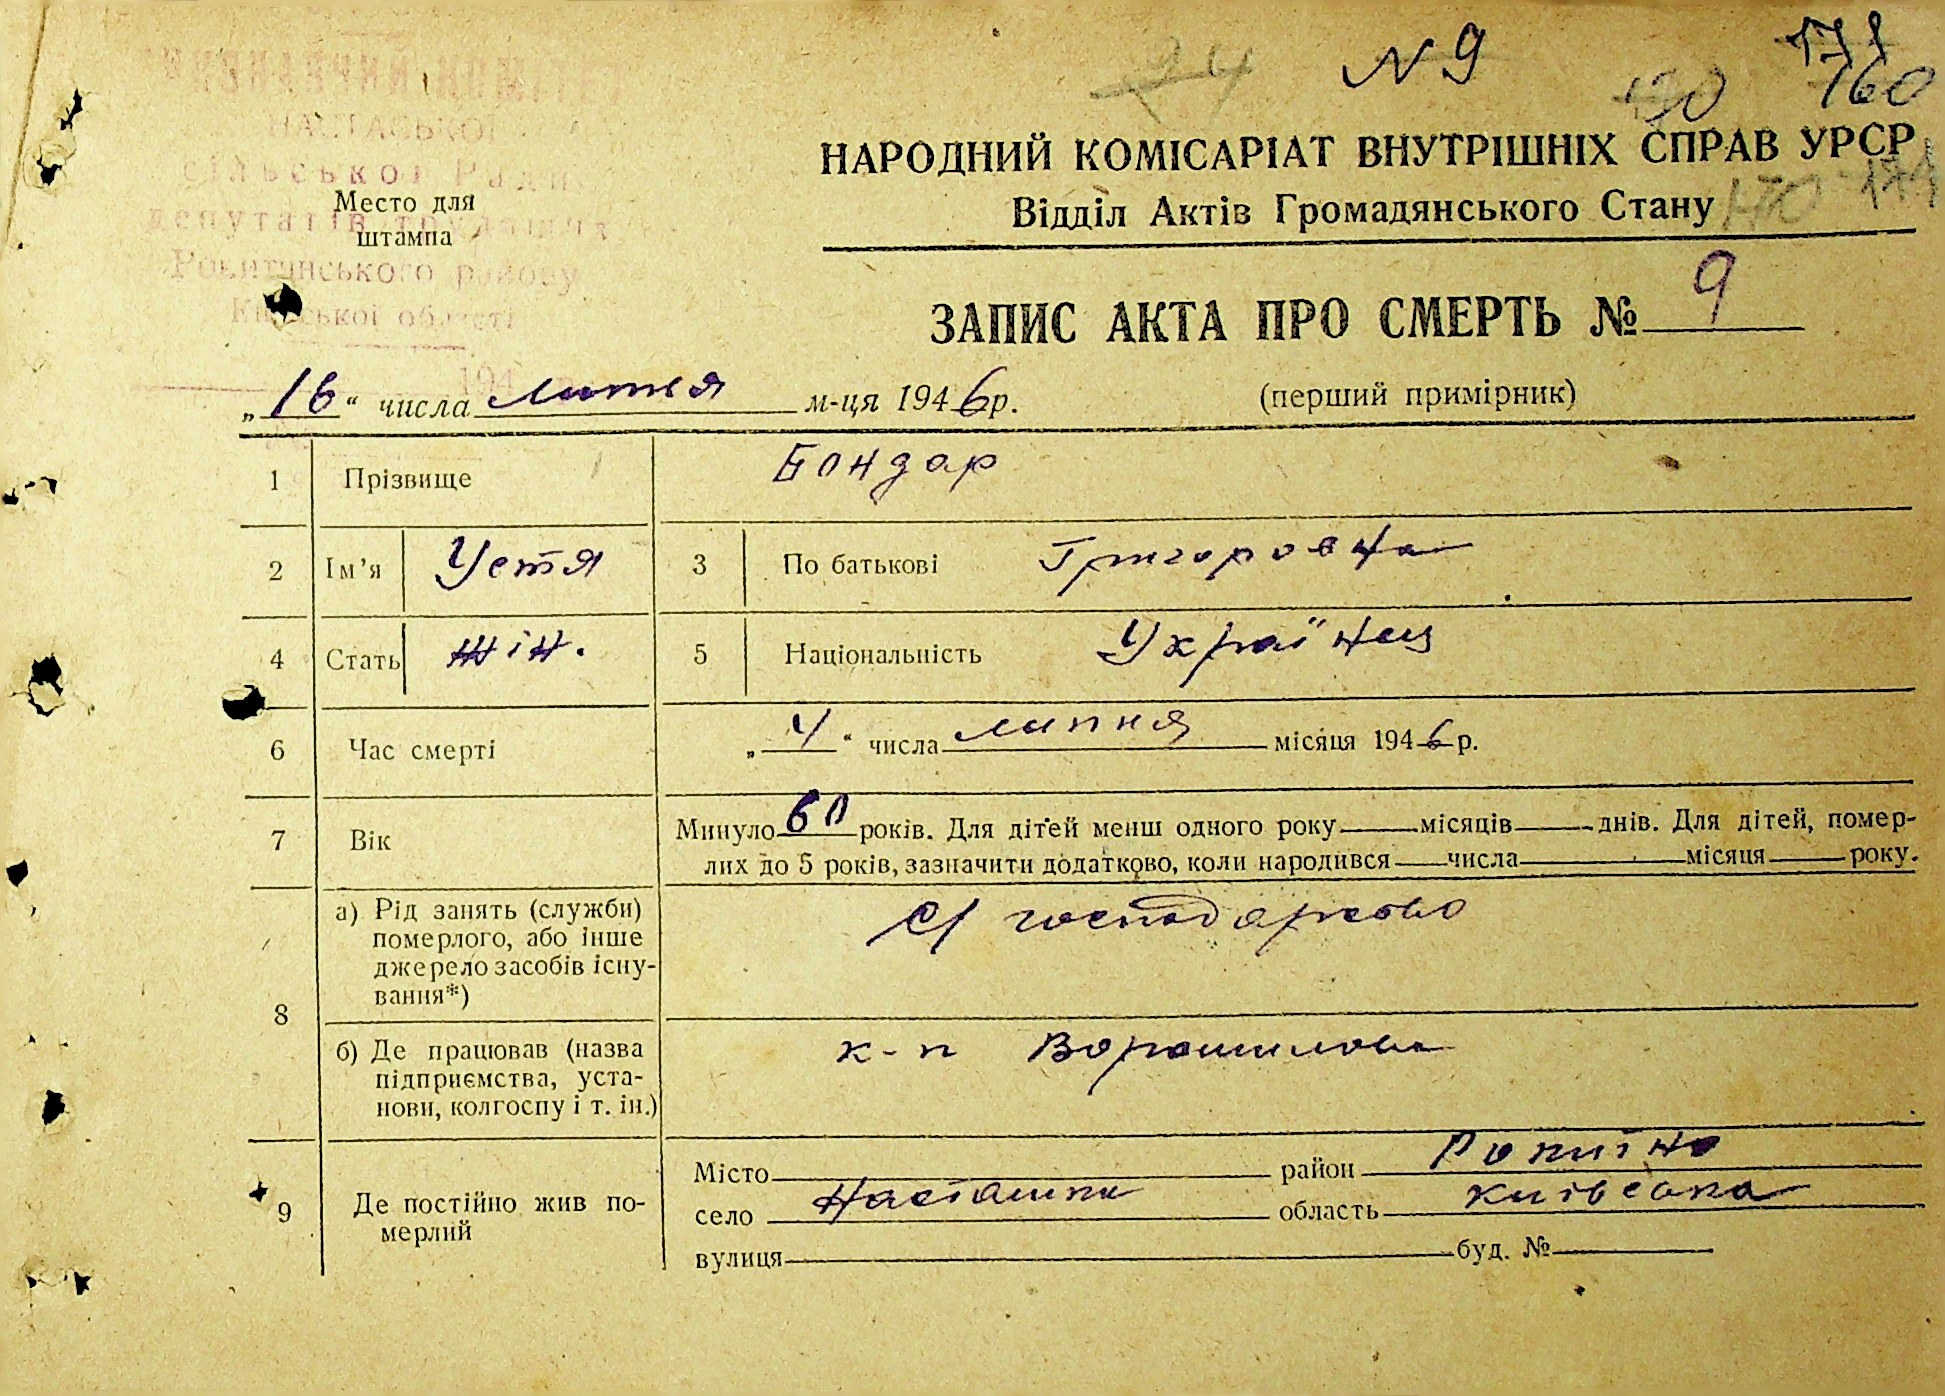 24 N 9 171
130 160
ВИКОНАВЧИЙ КОМІТЕТ
НАСТАСЬКОЇ
сільської Ради
депутатів трудящих
Рокитянського району
Київської області
194
Место для
штампа
НАРОДНИЙ КОМІСАРІАТ ВНУТРІШНІХ СПРАВ УРСР
Відділ Актів Громадянського Стану 170-171
ЗАПИС АКТА ПРО СМЕРТЬ № 9
„16“ числа липня м-ця 1946 р. (перший примірник)
1 Прізвище Бондар
2 Ім’я Устя 3 По батькові Григоровна
4 Стать жін. 5 Національність Українец
6 Час смерті „4“ числа липня місяця 1946 р.
7 Вік Минуло 60 років. Для дітей менш одного року місяців днів. Для дітей, помер-
лих до 5 років, зазначити додатково, коли народився числа місяця року.
8 а) Рід занять (служби) померлого, або інше джерело засобів існу-вання*) с/господарство
б) Де працював (назва підприємства, уста-нови, колгоспу і т. ін.) к-п Ворошилова
9 Де постійно жив по-мерлий
Місто район Рокитно
село Насташка область Київська
вулиця буд. №